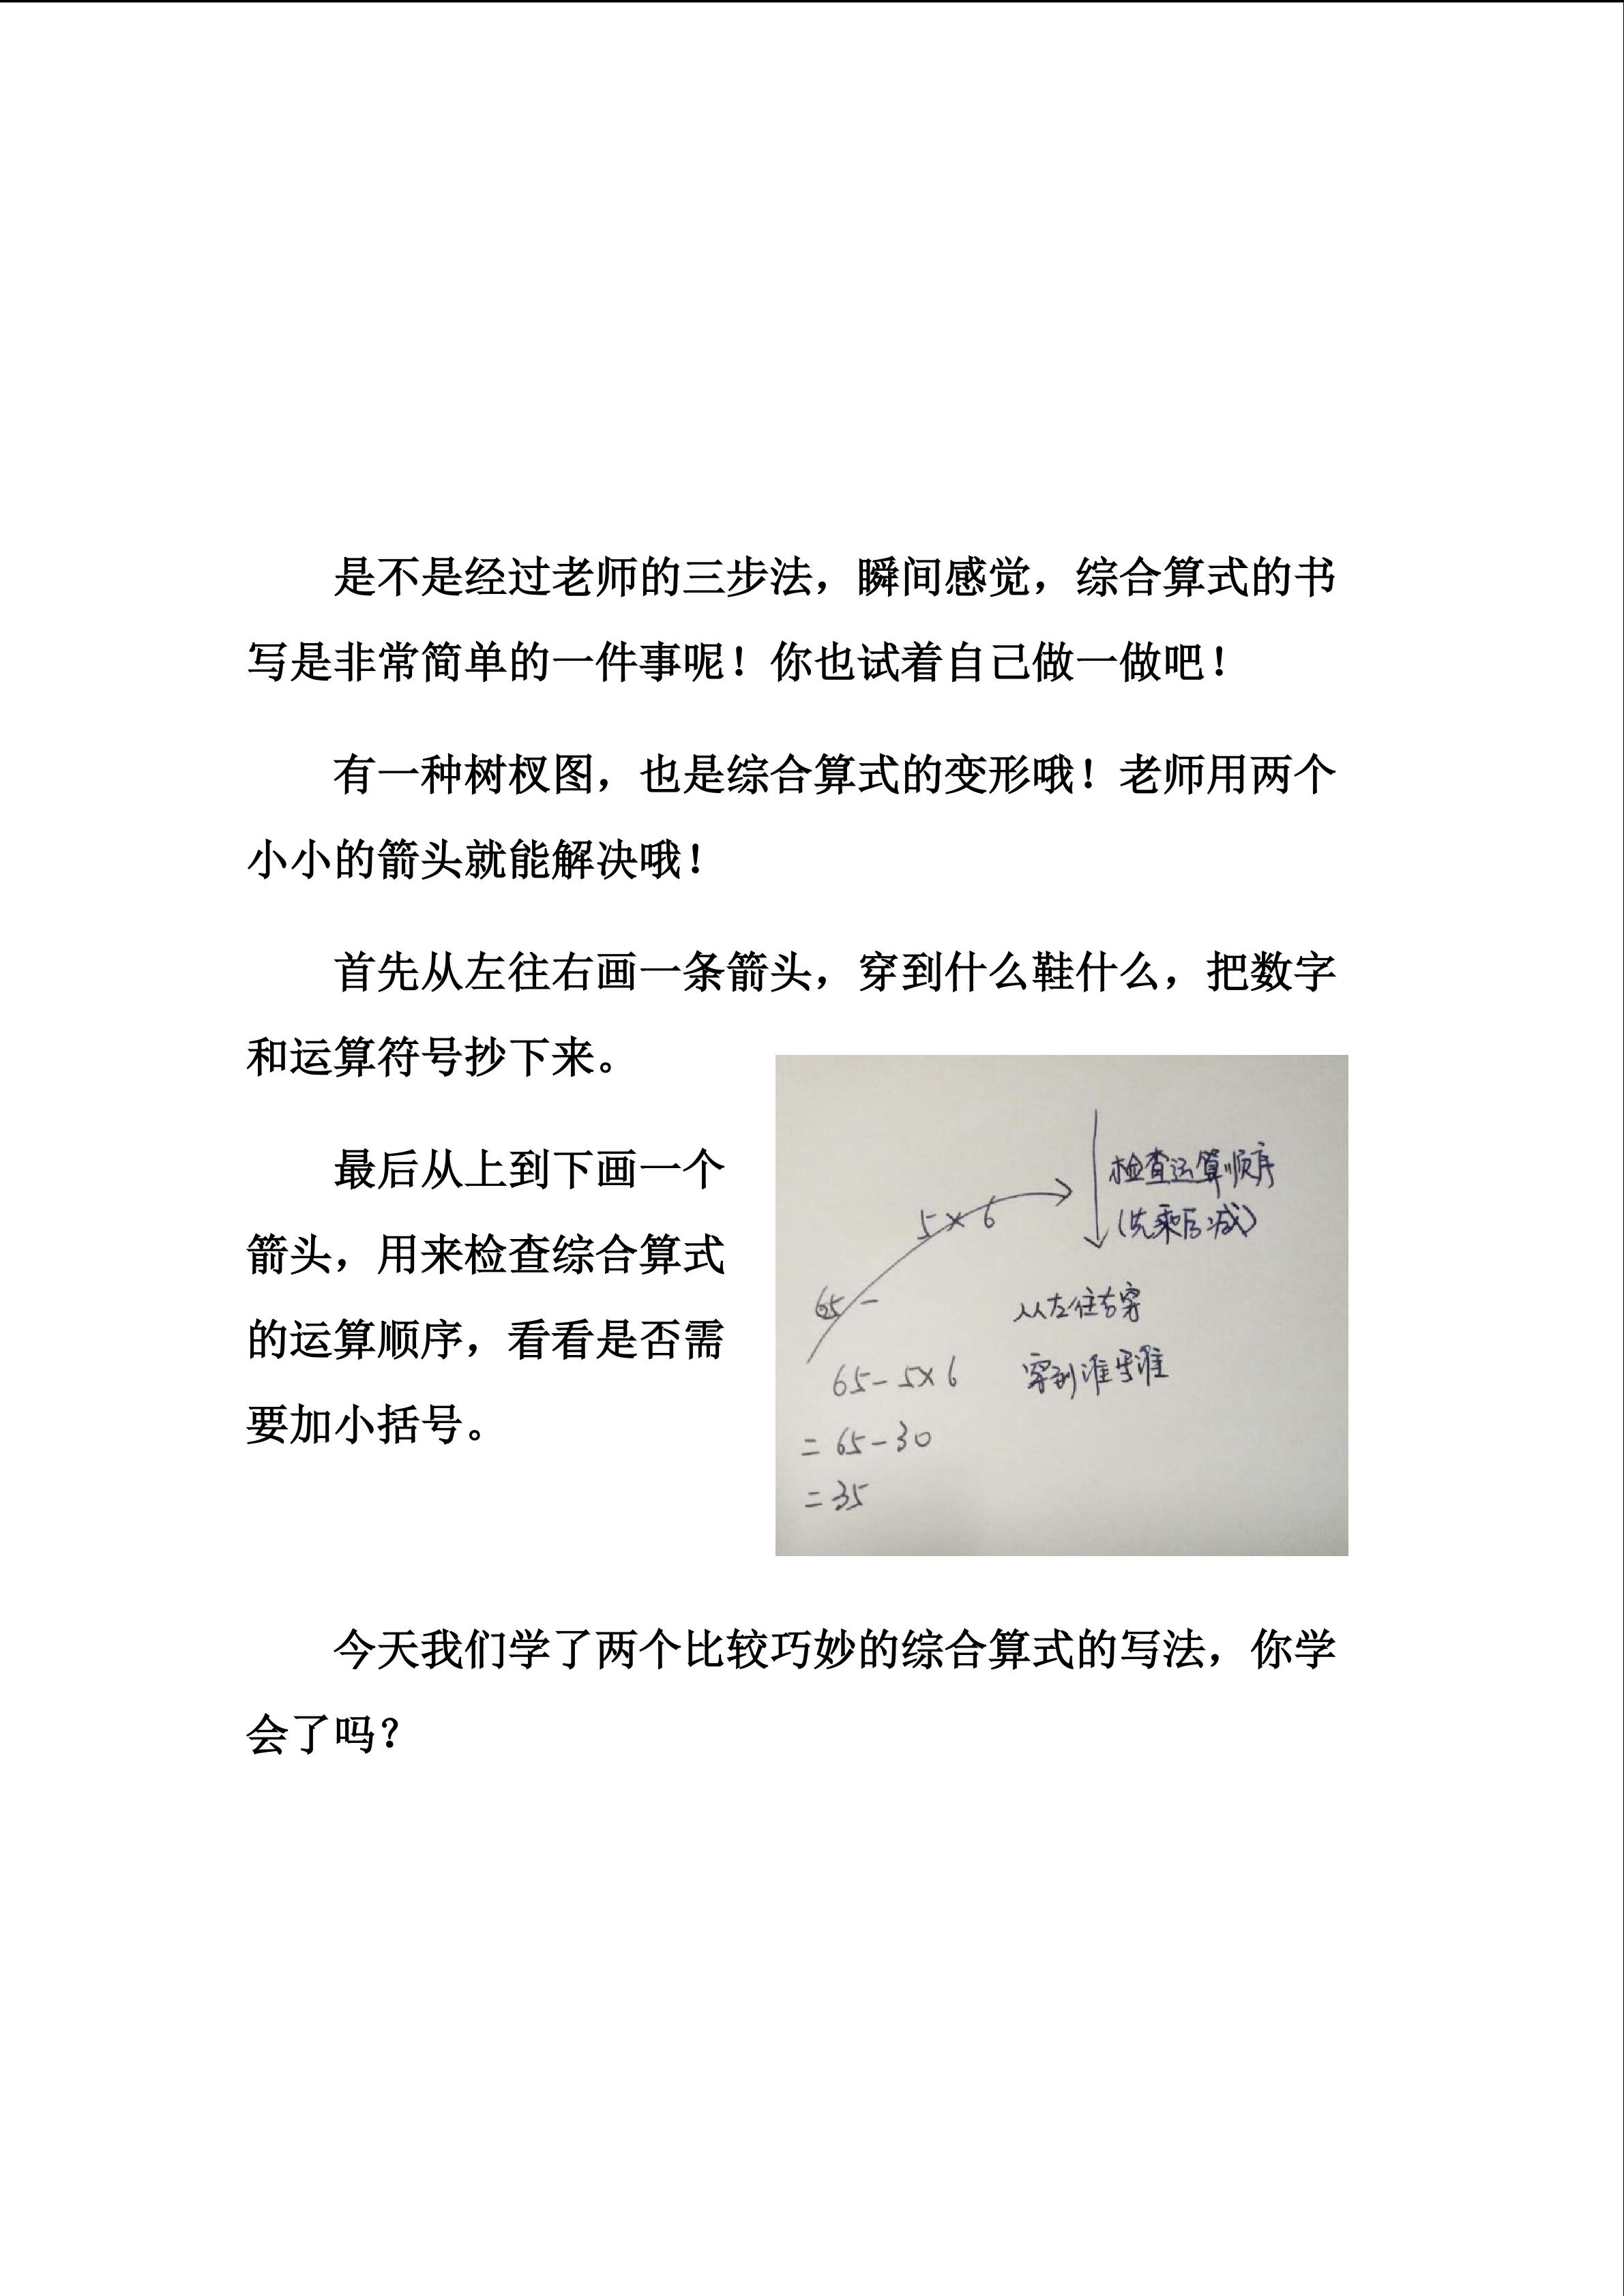 是不是经过老师的三步法，瞬间感觉，综合算式的书
写是非常简单的一件事呢！你也试着自己做一做吧！
有一种树杈图，也是综合算式的变形哦！老师用两个
小小的箭头就能解决哦！
首先从左往右画一条箭头，穿到什么鞋什么，把数字
和运算符号抄下来。
最后从上到下画一个
箭头，用来检查综合算式
的运算顺序，看看是否需
要加小括号。
检查运算顺序
(先乘后减)
5×6
65-
从左往右穿
65-5×6
穿到谁写谁
=65-30
=35
今天我们学了两个比较巧妙的综合算式的写法，你学
会了吗？